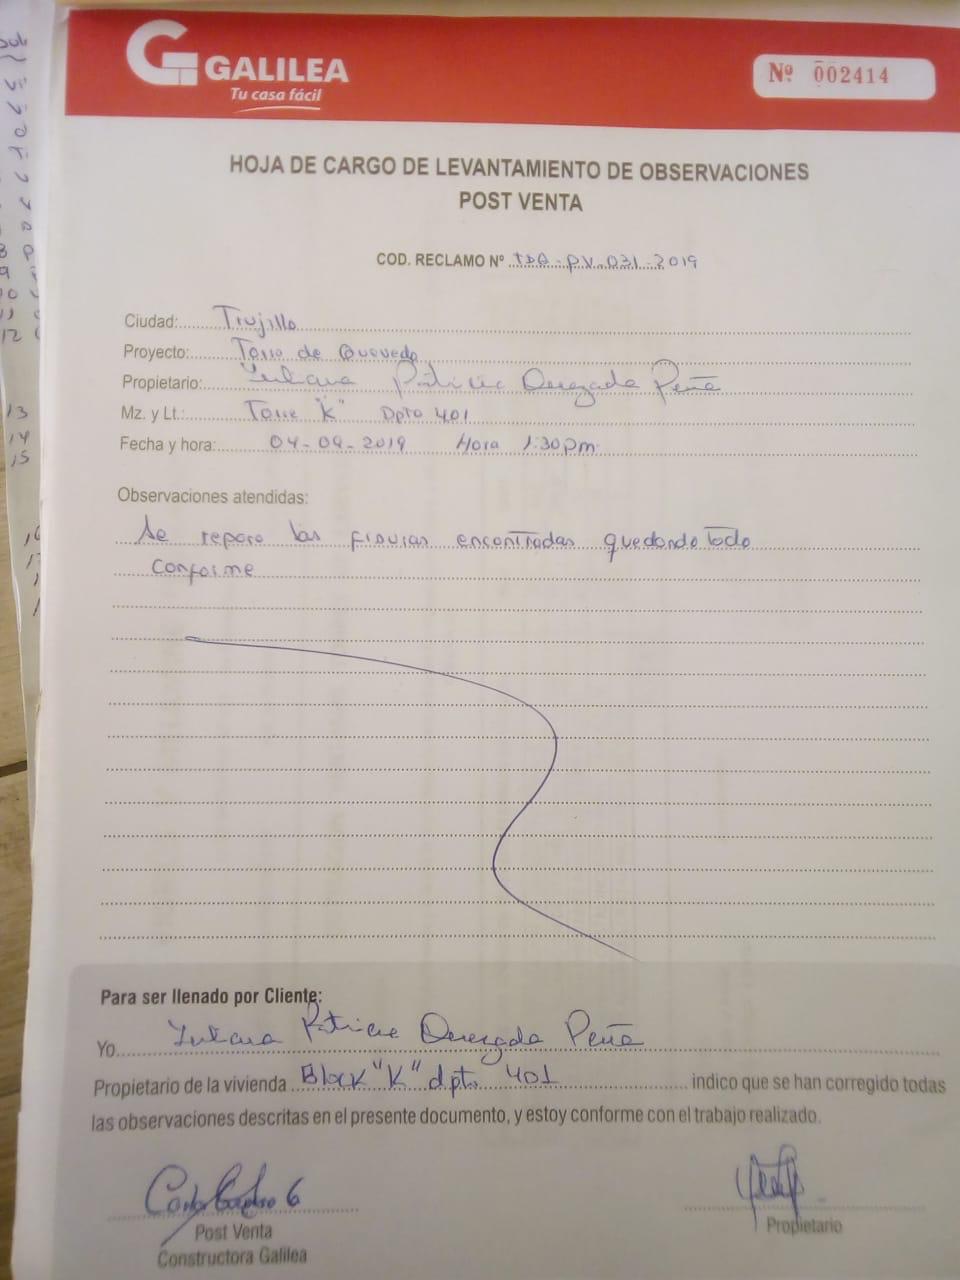 GALILEA
Tu casa fácil
Nº 002414
HOJA DE CARGO DE LEVANTAMIENTO DE OBSERVACIONES
POST VENTA
COD. RECLAMO Nº TDQ-PV-031-2019
Ciudad: Trujillo
Proyecto: Torre de Quevedo
Propietario: Yuliana Patricia Quezada Peña
Mz. y Lt.: Torre "K" Dpto 401
Fecha y hora: 04-09-2019 Hora 1:30pm.
Observaciones atendidas:
Se reparo las fisuras encontradas quedando todo
conforme
Para ser llenado por Cliente:
Yo Yuliana Patricia Quezada Peña
Propietario de la vivienda Block "K" dpto. 401 indico que se han corregido todas
las observaciones descritas en el presente documento, y estoy conforme con el trabajo realizado.
Post Venta
Constructora Galilea
Propietario
13
14
15